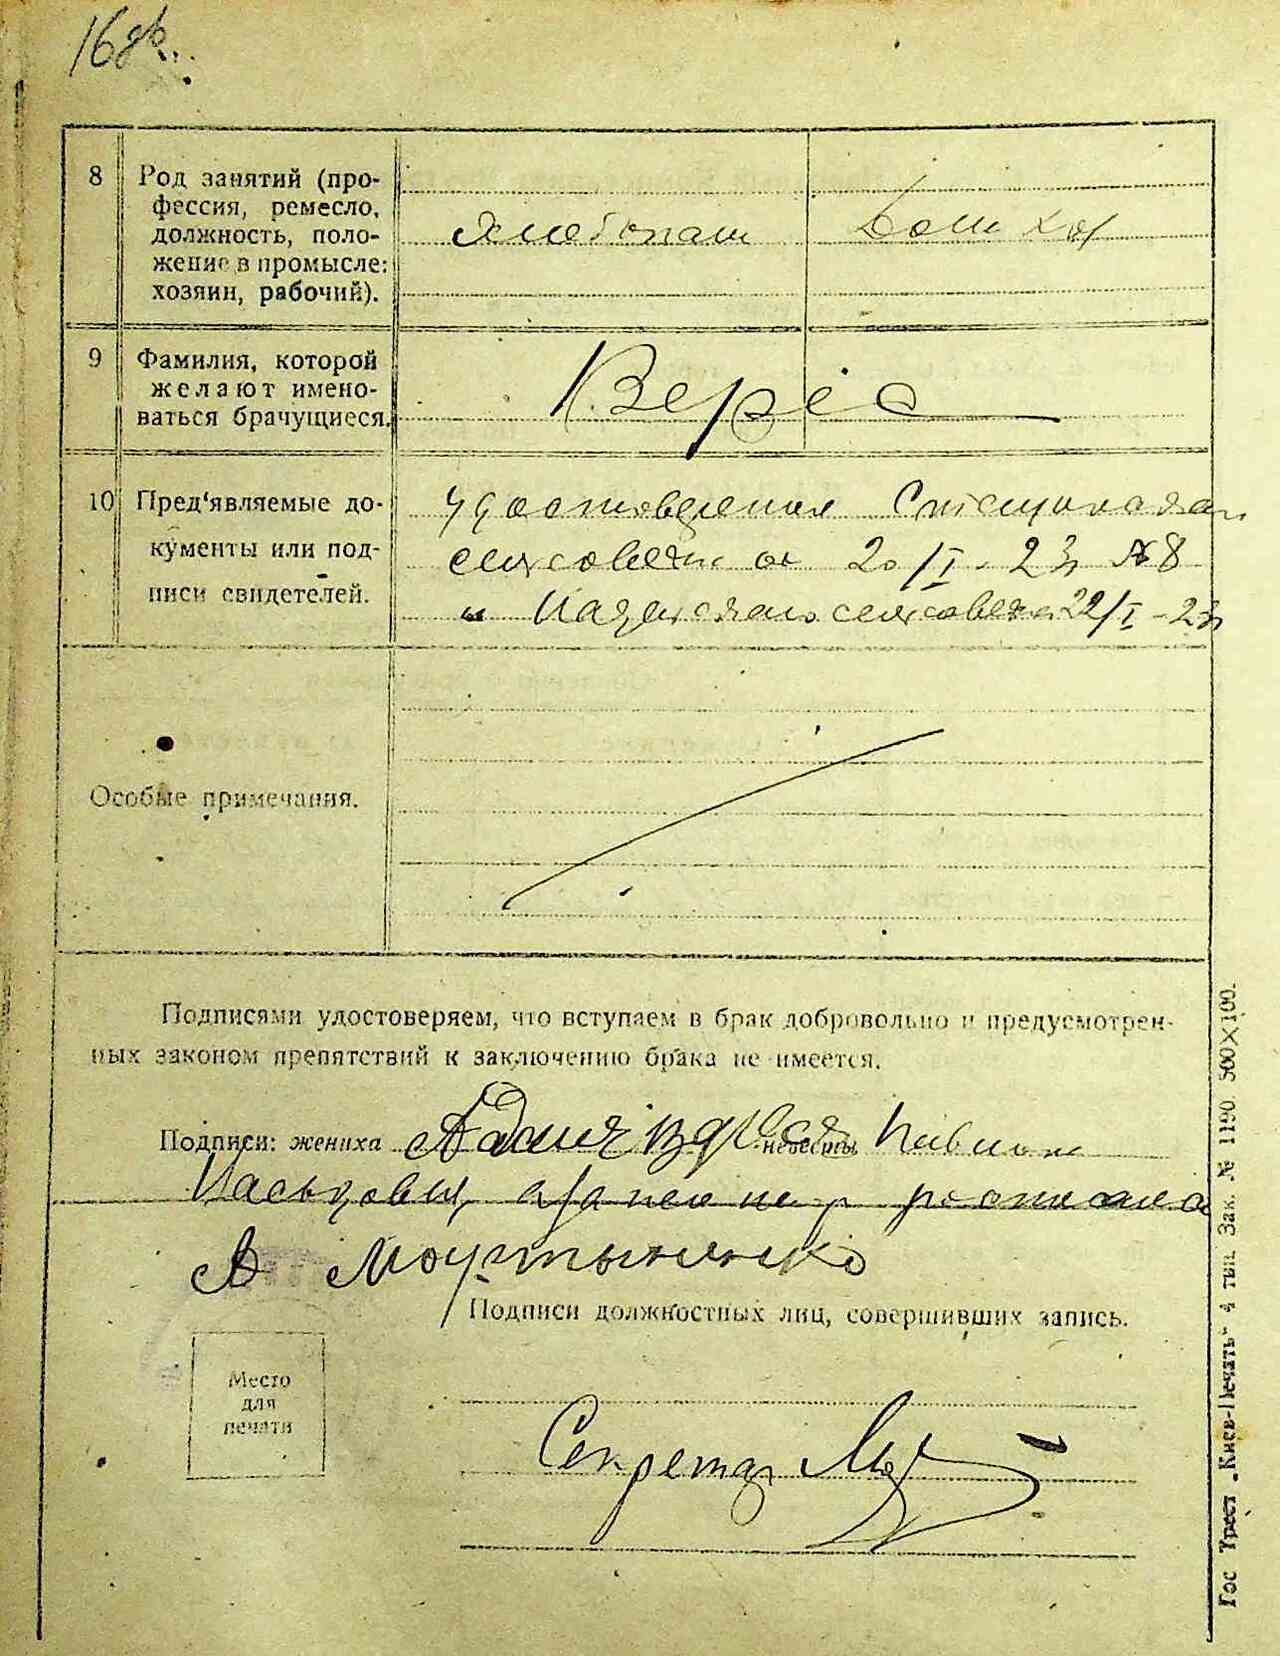 8 Род занятий (про-
фессия, ремесло,
должность, поло-
жение в промысле:
хозяин, рабочий).
Хлебопаш
Дом хоз
9 Фамилия, которой
желают имено-
ваться брачущиеся.
Веріс
10 Пред‘являемые до-
кументы или под-
писи свидетелей.
удостоверения
сельсовета от 20/I - 23 № 8
и сельсовета 22/I - 23
Особые примечания.
Подписями удостоверяем, что вступаем в брак добровольно и предусмотрен-
ных законом препятствий к заключению брака не имеется.
Подписи: жениха невесты
А
Подписи должностных лиц, совершивших запись.
Место
для
печати
Секретар
Гос Трест „Киев-Печать“ 4 тип. Зак. № 1190 500×100.